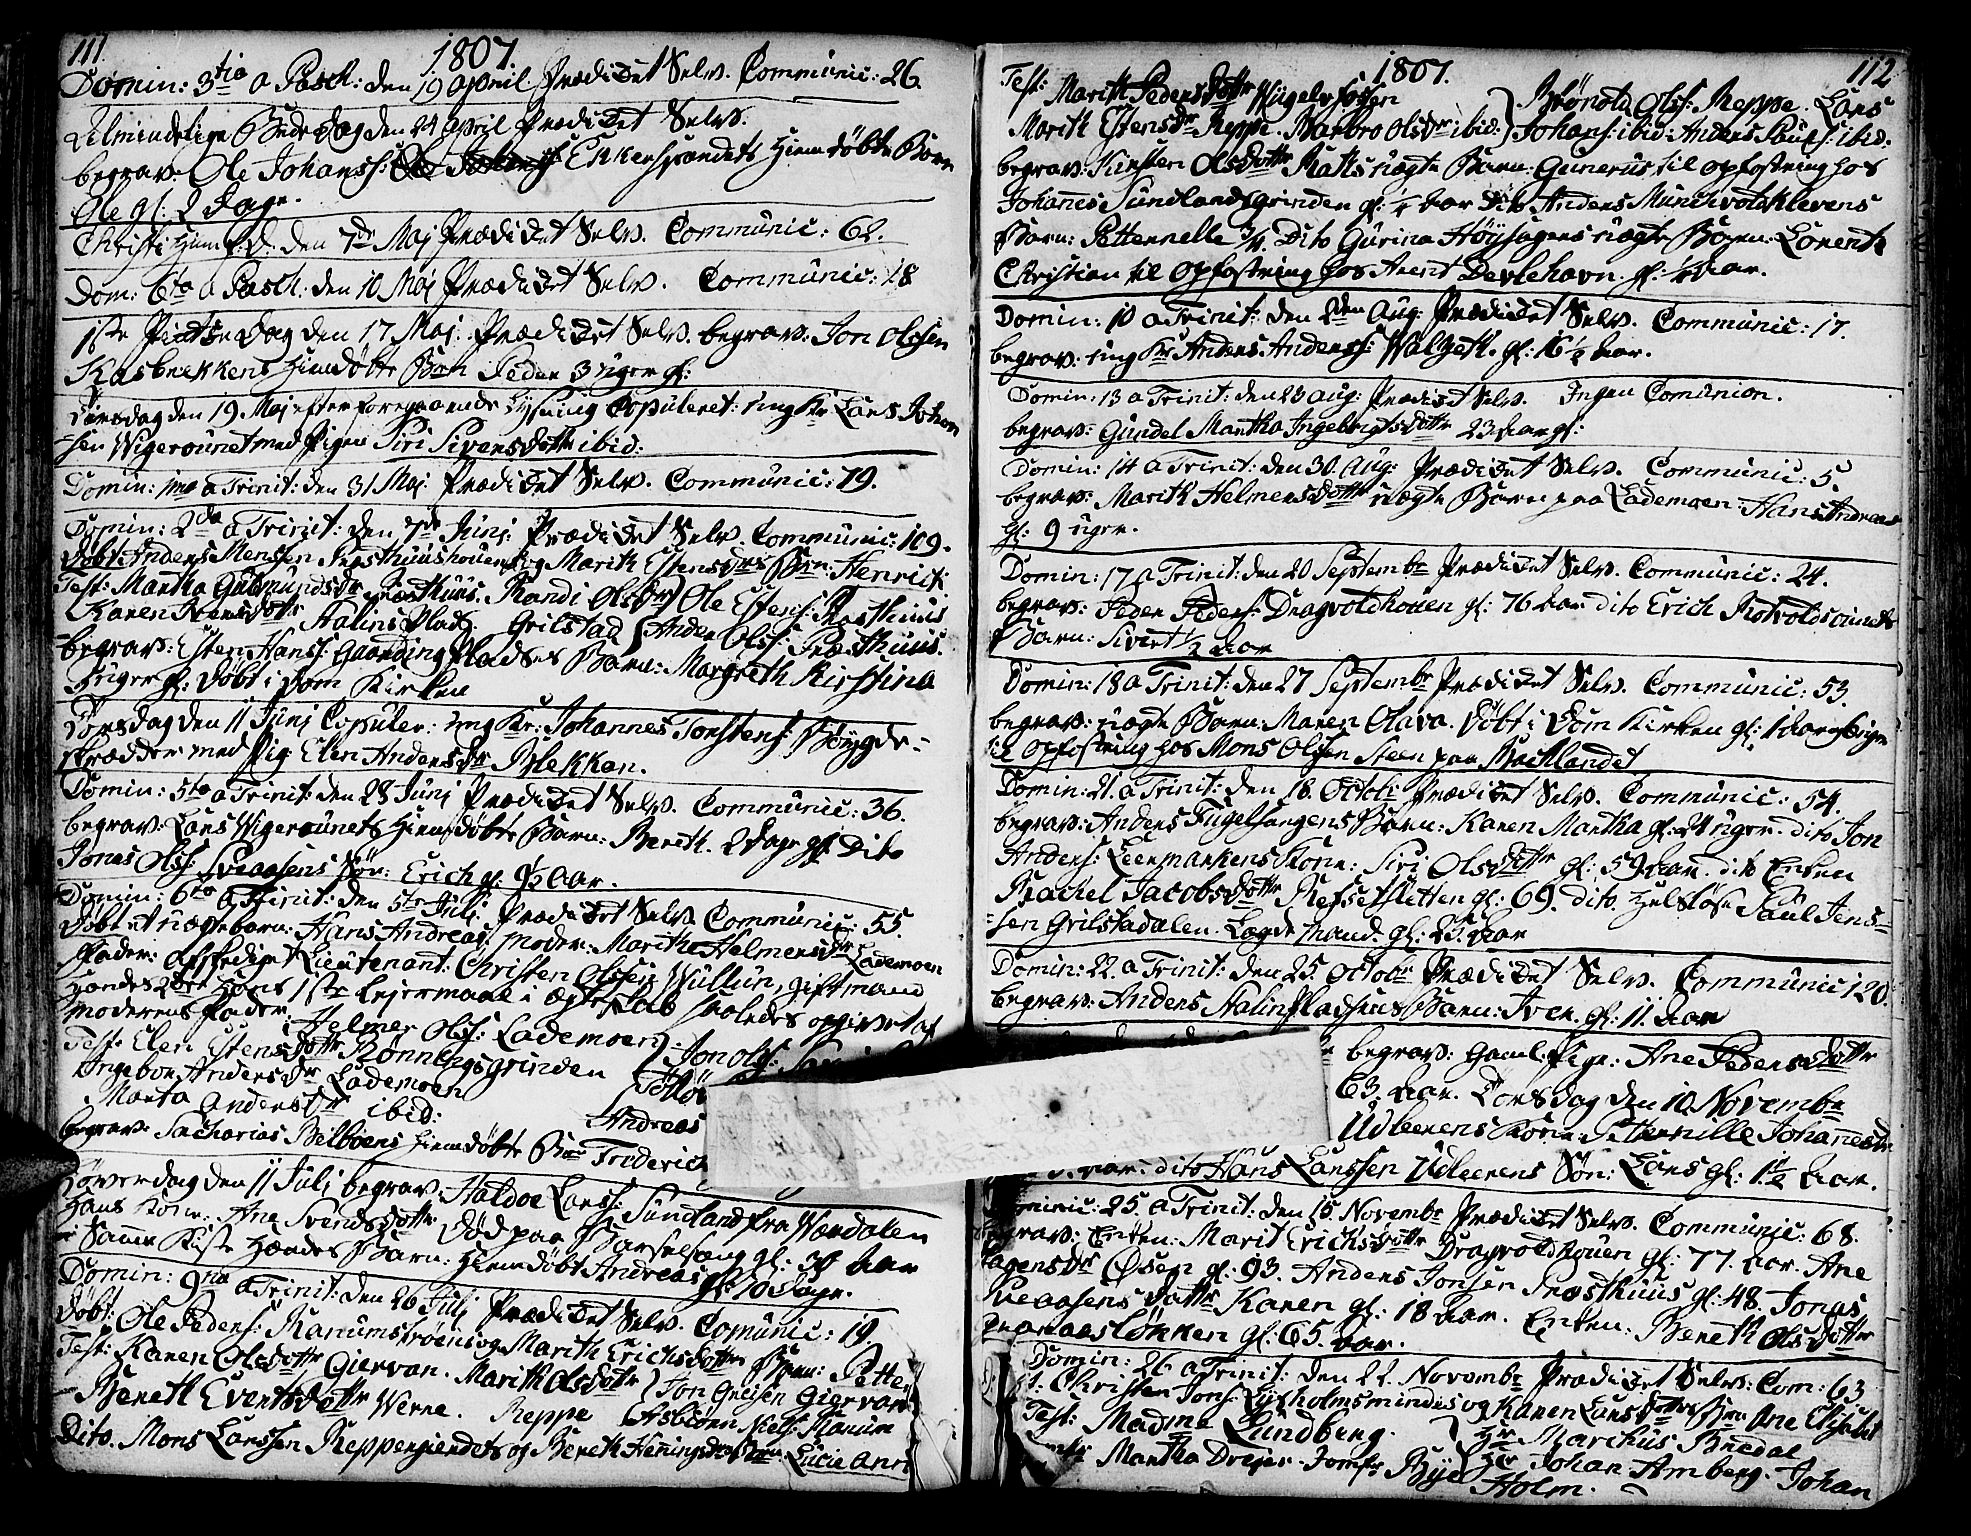 111.
1807.
Domin: 3tia a Pasch: den 19 April Prædiket Selv. Communic: 26.
Almindelige Bede Dag den 24 April Prædiket Selv.
begrav: Ole Johanss: Ekkersprandets Hiemdøbte Barn
Ole gl: 2 Dage.
Christi Himf: D: den 7de Maj Prædiket Selv. Communic: 62.
Dom: 6ta a Pasch: den 10 Maj Prædiket Selv. Communic: 18
1ste Pintse Dag den 17 Maj: Prædiket Selv. begrav: Jon Olssen
Kasbrekkens Hiemdøbte Barn Peder 3 uger gl:
Tirsdag den 19 Maj efter foregaaende Lysning Copuleret: ung Kr Lars Johan
sen Wigerounet med Pigen Siri Siversdottr ibid:
Domin: 1ma a Trinit: den 31 Maj Prædiket Selv. Communic: 19.
Domin: 2da a Trinit: den 7de Junj: Prædiket Selv. Communic: 109.
Døbt: Anders Monssen Presthuushouen og Marith Estensdrs Barn: Henrich:
Test: Martha Gudmundsdr Præsthuus. Randi Olsdr } Ole Estens: Præsthuus
Karen Iversdottr Stalins Plads. Grilstad } Anders Olss: Præsthuus.
begrav: Esten Hanss: Gaarding Pladses Barn: Margreth Kirstina
uger gl: døbt i Dom Kirken
Torsdag den 11 Junj Copuler: ung Kr: Johannes Torstens: Bøygde-
skrædder med Pig Elen Andersdr Blekkan.
Domin: 5ta a Trinit: den 28 Junj Prædiket Selv. Communic: 36.
begrav: Lars Wigerounets Hiemdøbte Barn: Bereth. 2 dage gl: Dito
Jonas Olss: Sveaasens Søn: Erich gl: 9½ Aar.
Domin: 6ta a Trinit: den 5te Julj. Prædiket Selv Communic: 55.
Døbt et uægtebarn: Hans Andreas: Moder: Marithe Helmersdr Lademoen
Fader: afskediget Lieutenant: Christen Olssen Wullum, gift mand
Hendes 2det Hans 1ste Leiermaal i Ægteskab saaledes opgivet af
moderens Fader. Helmer Olss: Lademoen
Test: Elen Estensdottr Rønningsgrinden } Jon Olss:
Ingebor Andersdr Lademoen
Marta Andersdr ibid: Andreas
begrav: Sacharias Belboens Hiemdøbte Barn Friderich
Løverdag den 11 Julj begrav: Haldoe Larss: Sundland fra Wærdalen
Hans Kone: Ane Svendsdottr Død paa Barselseng gl: 30 Aar
i Samme Kiste Hendes Barn: Hiemdøbt Andreas gl: 10 Dage.
Domin: 9na a Trinit: den 26 Julj Prædiket Selv. Comunic: 19.
Døbt: Ole Peders: Ranumstrøens og Marith Erichsdottrs Barn: Petter
Test: Karen Olsdottr Giervan. Marith Olsdottr } Jon Greisen Giervan
Bereth Evertsdottr Werne. Reppe Asbiørn Niels: Ranum
Dito. Mons Larssen Reppesgiendets og Bereth Heningsdrs Barn: Lucie Ann
1807.
112
Test: Marith Pedersdottr Wigelvfossen } Brønold Olss: Reppe. Lars
Marith Estensdr Reppe. Barbro Olsdr ibid: } Johans: ibid: Anders Pouls: ibid:
begrav: Kirsten Olsdottr Ratts uægte Barn: Gunerus til opfostring hos
Johannes Sundlandsgrinden gl: ¼ Aar Dito Anders Munchvoldklevens
Barn: Petternelle ¾. Dito Gurina Høysagens uægte Barn. Lorents
Christian til opfostring hos Arent Devlehavn. gl: ½ Aar.
Domin: 10 a Trinit: den 2den Aug: Prædiket Selv. Communic: 17.
begrav: ung Kr Anders Anderss: Walseth. gl: 16½ Aar.
Domin: 13 a Trinit: den 23 Aug: Prædiket Selv. Ingen Comunion.
begrav: Gundel Martha Ingebrigtsdottr 23 Aar gl:
Domin: 14 a Trinit: den 30. Aug: Prædiket Selv. Communic: 5.
begrav: Marith Helmersdottrs uægte Barn paa Lademoen: Hans Andreas
gl: 9 uger.
Domin: 17 a Trinit: den 20 Septembr Prædiket Selv. Communic: 24.
begrav: Peder Peders: Dragvoldhouen gl: 76 Aar dito Erich Rotvoldsounets
Barn: Sivert ½ Aar
Domin: 18 a Trinit: den 27 Septembr Prædiket Selv. Communic: 53.
begrav: uægte Barn: Maren Olava. Døbt i Dom Kirken gl: 1 Aar
til opfostring hos Mons Olssen Steen paa Backlandet
Domin: 21. a Trinit: den 18. Octobr Prædiket Selv. Communic: 54.
begrav: Anders Fugelsangens Barn: Karen Martha gl: 24 uger. dito Jon
Anders: Leermarkens Kone: Siri Olsdottr gl: 59 Aar. dito Enken
Rachel Jacobsdottr Refsetsletten gl: 69. dito Huusløse Paul Jens-
sen Grilstadalen. Lagdsmand. gl: Aar
Domin: 22. a Trinit: den 25. Octobr Prædiket Selv. Communic 120.
begrav: Anders Stalinpladsens Barn: Iver. gl: 11. Aar
begrav: Gaml: Pige: Ane Pedersdottr
63. Aar. Torsdag den 10 Novembr
Udleerens Kone: Peternille Johannesdr
Aar. dito Hans Larssen Udleerens Søn: Lars gl: 1½ Aar.
Dominic: 25. a Trinit: den 15 Novembr Prædiket Selv. Communic: 68.
begrav: Enken: Marit Erichsdottr Dragvoldhouen gl: 77. Aar. Ane
agersdr Øsen gl: 93. Anders Jonsen Præsthuus gl: 48. Jonas
Sveaasens Dattr Karen gl: 18 Aar. Enken: Bereth Olsdottr
løkken gl: 65. Aar.
Domin: 26 a Trinit: den 22. Novembr Prædiket Selv: Com: 63
Christen Jons: Lysholmsmindes og Karen Larsdottrs Barn Ane Elisabet
Test: Madme Lundberg. } Hr Marchus Bredal
Martha Dreyer. Jomfr Bye } Hr Johan Arnberg. Johan
Holm.